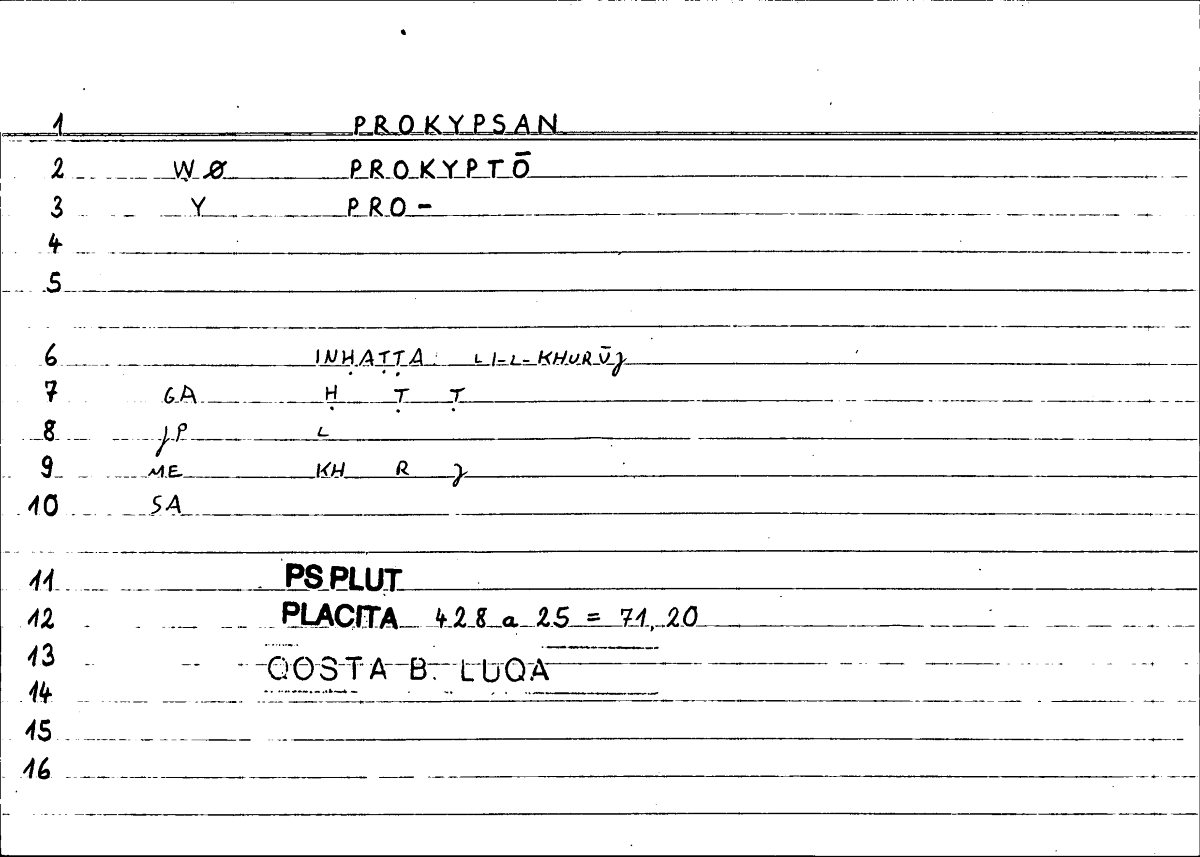 1 PROKYPSAN
2 WØ PROKYPTŌ
3 Y PRO-
4
5
6 INḤAṬṬA LI-L-KHURŪJ
7 GA Ḥ Ṭ Ṭ
8 JP L
9 ME KH R J
10 SA
11 PS PLUT
12 PLACITA 428 a 25 = 71,20
13 QOSTA B. LUQA
14
15
16